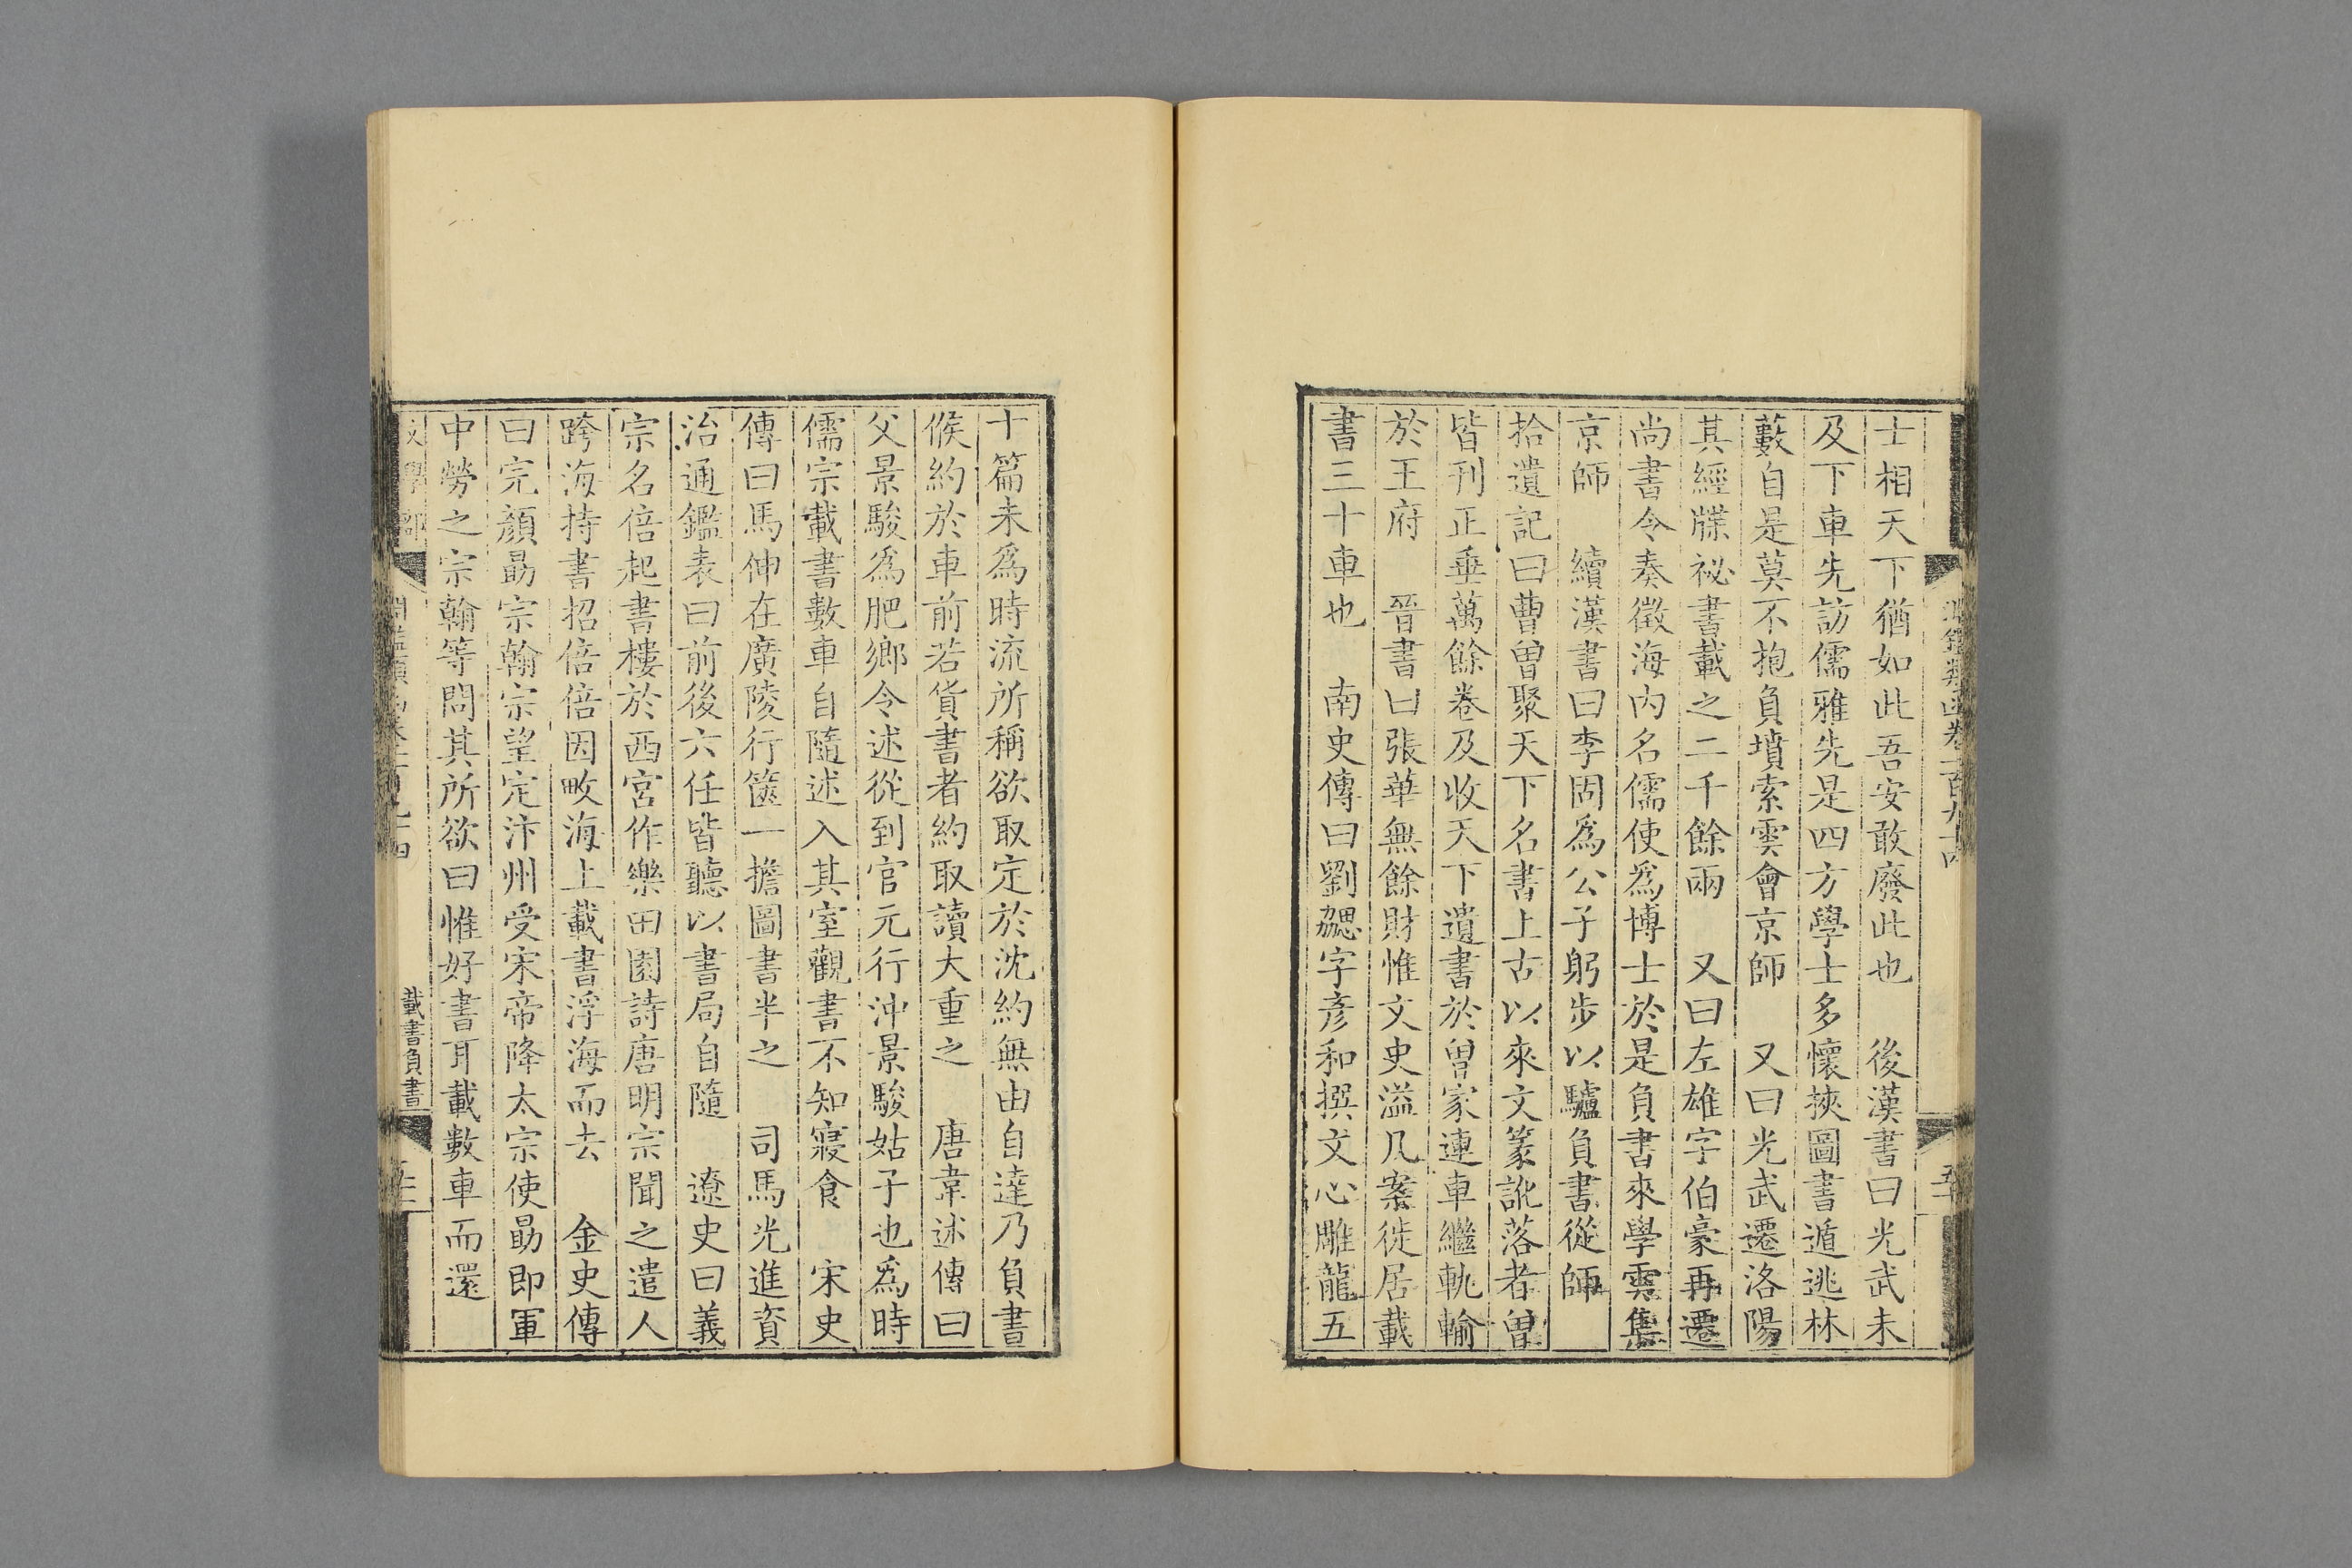 士相天下猶如此吾安敢廢此也　後漢書曰光武未
及下車先訪儒雅先是四方學士多懷挾圖書遁逃林
藪自是莫不抱負墳索雲會京師　又曰光武遷洛陽
其經牒祕書載之二千餘兩　又曰左雄字伯豪再遷
尚書令奏徵海內名儒使爲博士於是負書來學雲集
京師　續漢書曰李固爲公子躬步以驢負書從師
拾遺記曰曹曾聚天下名書上古以來文篆訛落者曾
皆刊正垂萬餘卷及收天下遺書於曾家連車繼軌輸
於王府　晉書曰張華無餘財惟文史溢几案徙居載
書三十車也　南史傳曰劉勰字彥和撰文心雕龍五
十篇未爲時流所稱欲取定於沈約無由自達乃負書
候約於車前若貨書者約取讀大重之　唐韋述傳曰
父景駿爲肥鄉令述從到官元行沖景駿姑子也爲時
儒宗載書數車自隨述入其室觀書不知寢食　宋史
傳曰馬伸在廣陵行篋一擔圖書半之　司馬光進資
治通鑑表曰前後六任皆聽以書局自隨　遼史曰義
宗名倍起書樓於西宮作樂田園詩唐明宗聞之遣人
跨海持書招倍倍因畋海上載書浮海而去　金史傳
曰完顏勗宗翰宗望定汴州受宋帝降太宗使勗即軍
中勞之宗翰等問其所欲曰惟好書耳載數車而還
文學部
載書負書